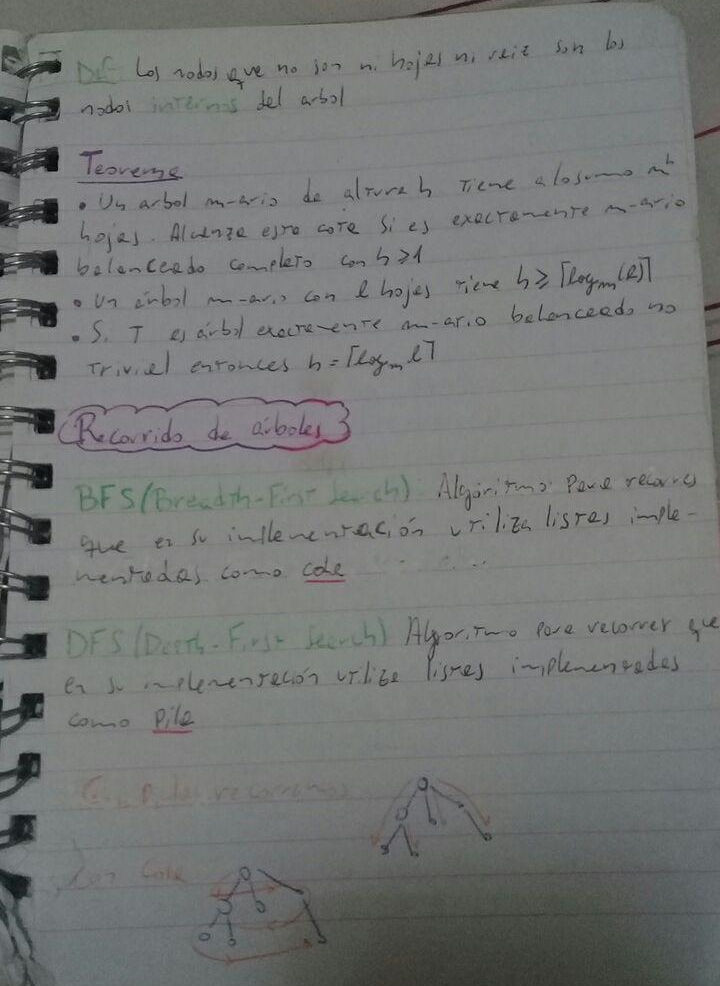 Def Los nodos que no son ni hojas ni raiz son los
nodos internos del arbol
Teorema
• Un arbol m-ario de altura h tiene a lo sumo m^h
hojas. Alcanza esta cota si es exactamente m-ario
balanceado completo con h ≥ 1
• Un árbol m-ario con l hojas tiene h ≥ ⌈log_m(l)⌉
• Si T es árbol exactamente m-ario balanceado no
trivial entonces h = ⌈log_m l⌉
Recorrido de árboles
BFS (Breadth-First Search) Algoritmo para recorrer
que en su implementación utiliza listas imple-
mentadas como cola
DFS (Depth-First Search) Algoritmo para recorrer que
en su implementación utiliza listas implementadas
como pila
Con pila recorremos
Con cola